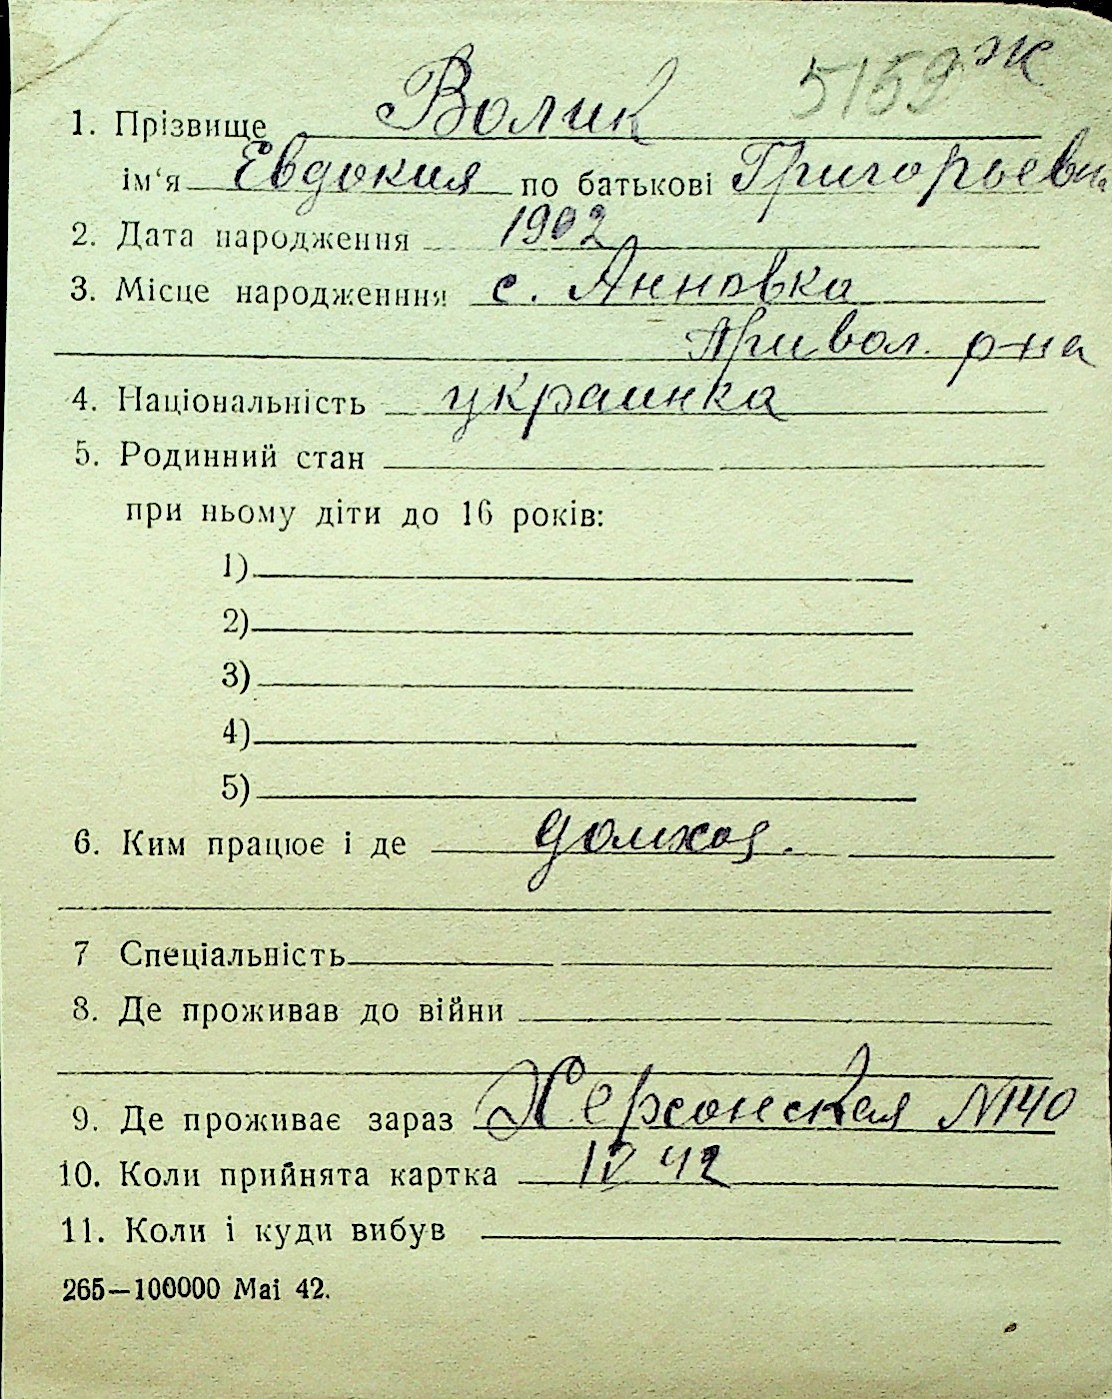 5159 ж
1. Прізвище Волик
ім‘я Евдокия по батькові Григорьевна
2. Дата народження 1902
3. Місце народженння с. Анновка
Привол. р-на
4. Національність украинка
5. Родинний стан
при ньому діти до 16 років:
1)
2)
3)
4)
5)
6. Ким працює і де домхоз.
7 Спеціальність
8. Де проживав до війни
9. Де проживає зараз Херсонская №140
10. Коли прийнята картка IV 42
11. Коли і куди вибув
265—100000 Mai 42.